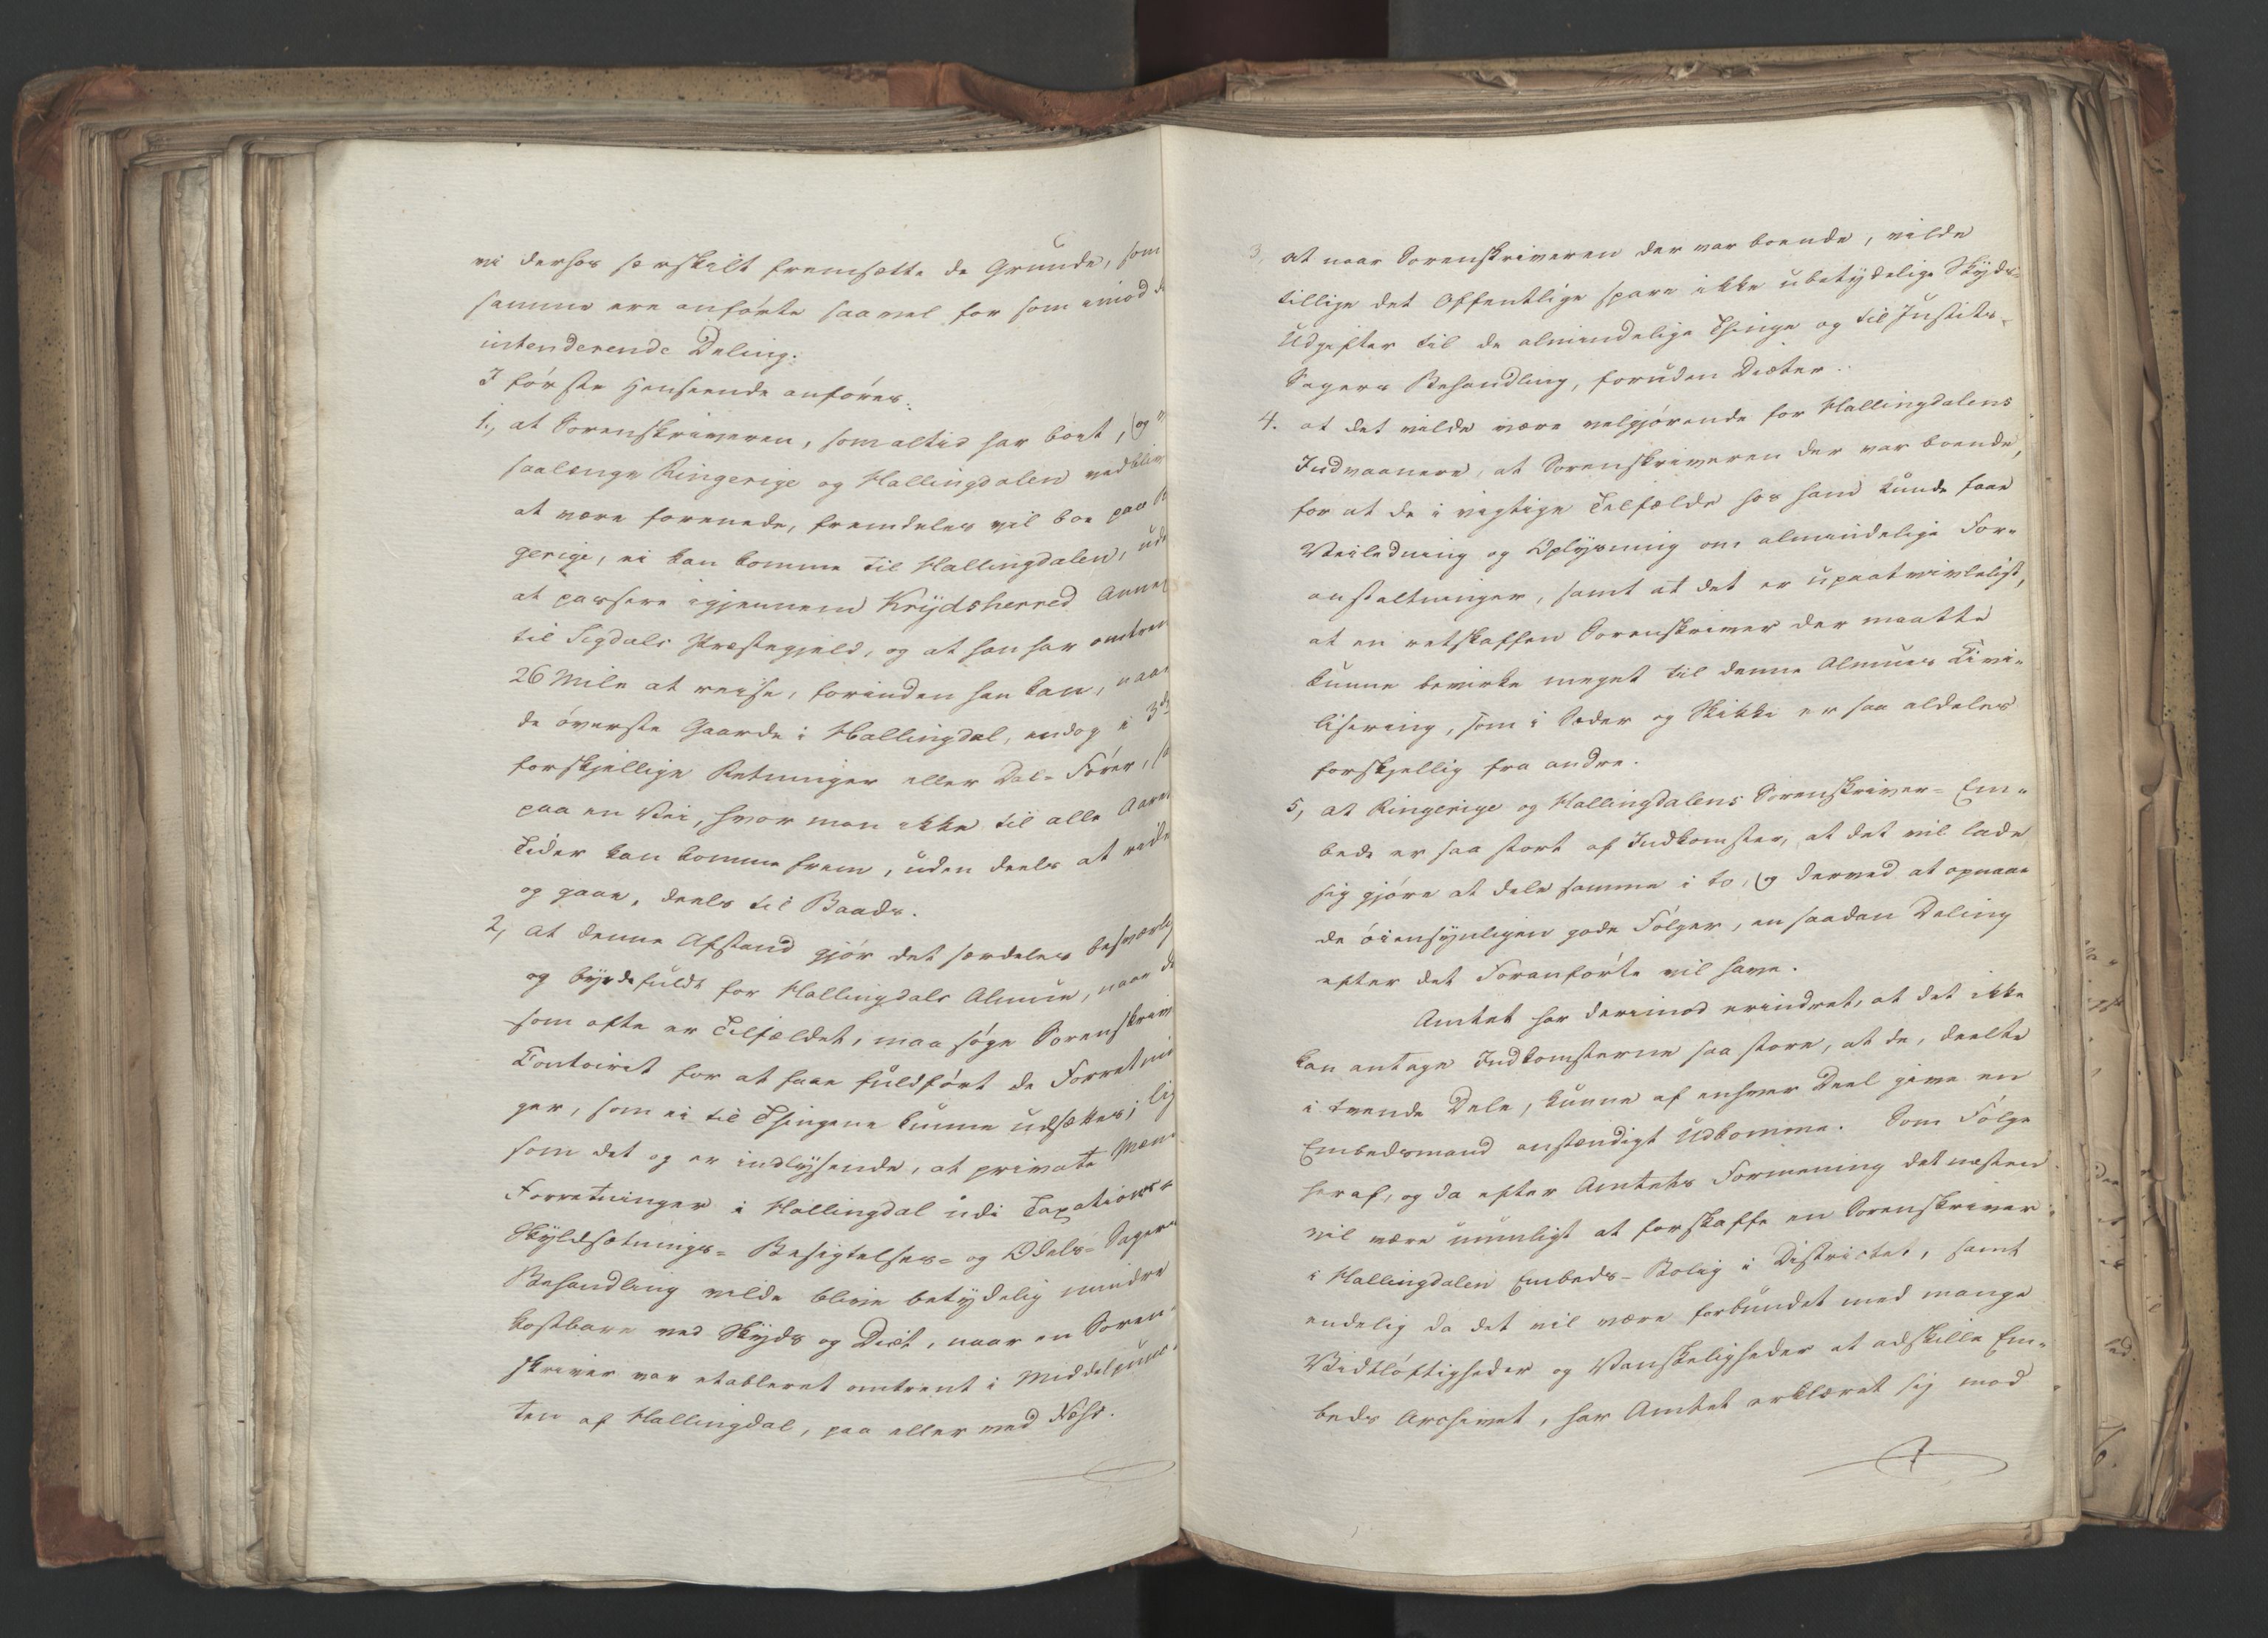 vi derhos særskilt fremsætte de Grunde, som
samme ere anførte saavel for som imod d
intenderende Deling.
I første Henseende anføres:
1., at Sorenskriveren, som altid har boet, (og
saalænge Ringerige og Hallingdalen vedbliv
at være forenede, fremdeles vil boe paa R
gerige, ei kan komme til Hallingdalen, ude
at passere igjennem Krydsherred Annex
til Sigdals Præstegjeld, og at han har omtren
26 Mile at reise, forinden han kan, naae
de øverste Gaarde i Hallingdal, endog i 3de
forskjellige Retninger eller Dal-Fører,
paa en Vei, hvor man ikke til alle Aaret
Tider kan komme frem, uden deels at ride
og gaae, deels til Baads.
2, at denne Afstand gjør det særdeles besværlig
og byrdefuldt for Hallingdals Almue, naar de
som ofte er Tilfældet, maa søge Sorenskriv
Contoiret for at faae fuldført de Forretnin
ger, som ei til Thingene kunne udsættes; lig
som det og er indlysende, at private Mæn
Forretninger i Hallingdal udi Taxations-
Skyldsætnings- Besigtelses- og Odels- Sagers
Behandling vilde blive betydelig mindre
kostbare ved Skyds og Diæt, naar en Soren-
skriver var etableret omtrent i Middelpunc-
ten af Hallingdal, paa eller ved Næss.
3, at naar Sorenskriveren der var boende, vilde
tillige det Offentlige spare ikke ubetydelige Skyds-
Udgifter til de almindelige Thinge og til Justits-
Sagers Behandling, foruden Diæter.
4. at det vilde være velgjørende for Hallingdalens
Indvaanere, at Sorenskriveren der var boende,
for at de i vigtige Tilfælde hos ham kunde faae
Veiledning og Oplysning om almindelige For-
anstaltninger, samt at det er upaatvivleligt,
at en retskaffen Sorenskriver der maatte
kunne bevirke meget til denne Almues Civi-
lisering, som i Sæder og Skikke er saa aldeles
forskjellig fra andre.
5, at Ringerige og Hallingdalens Sorenskriver- Em-
bede er saa stort af Indkomster, at det vil lade
sig gjøre at dele samme i to, og derved at opnaae
de øiensynligen gode Følger, en saadan Deling
efter det Foranførte vil have.
Amtet har derimod erindret, at det ikke
kan antage Indkomsterne saa store, at de, deelte
i tvende Dele, kunne af enhver Deel give en
Embedsmand anstændigt Udkomme. Som Følge
heraf, og da efter Amtets Formening det næsten
vil være umuligt at forskaffe en Sorenskriver
i Hallingdalen Embeds-Bolig i Districtet, samt
endelig da det vil være forbundet med mange
Vidtløftigheder og Vanskeligheder at adskille Em-
beds Archivet, har Amtet erklæret sig mod